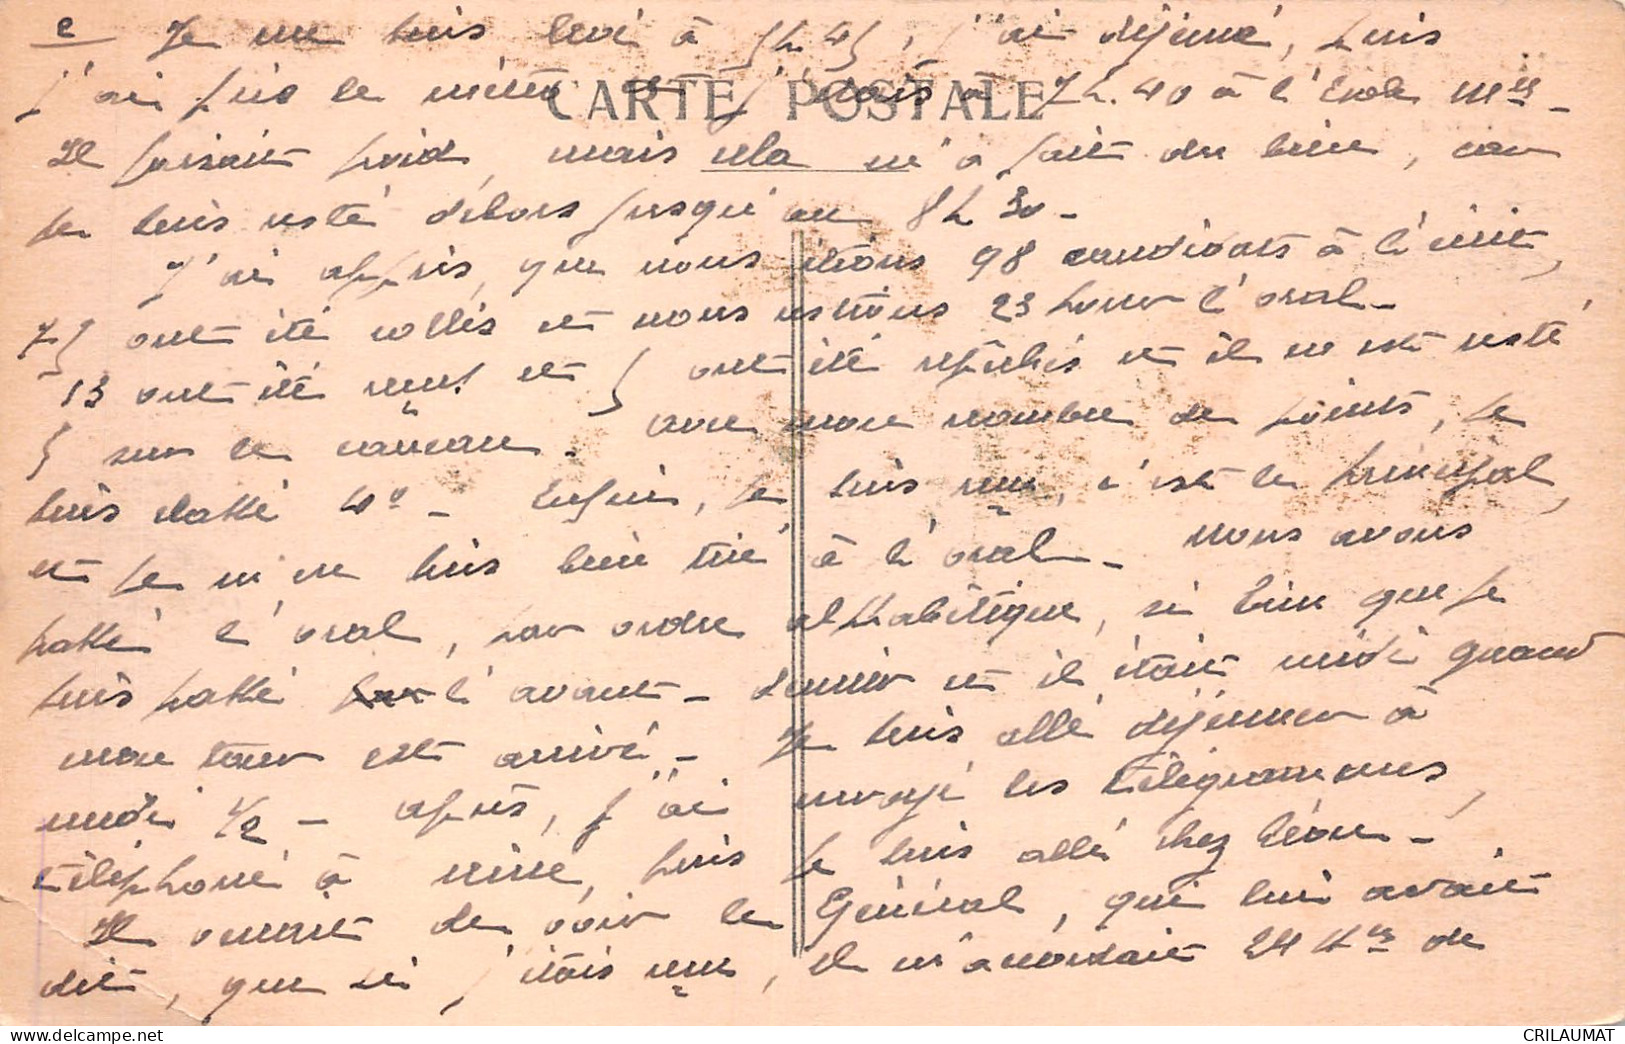 2 Je me suis levé à 5h45, j'ai déjeuné, puis
CARTE POSTALE
j'ai pris le métro et j'étais à 7h.40 à l'Ecole Mre_
Il faisait froid, mais cela m'a fait du bien, car
je suis resté dehors jusqu'au 8h30_
J'ai appris, que nous étions 98 candidats à l'écrit,
75 ont été collés et nous restions 23 pour l'oral_
13 ont été reçus et 5 ont été repêchés et il n'en est resté
5 sur le carreau. Avec mon nombre de points, je
suis classé 4e_ Enfin, je suis reçu, c'est le principal,
et je m'en suis bien tiré à l'oral_ Nous avons
passé l'oral, par ordre alphabétique, si bien que je
suis passé l'avant-dernier et il était midi quand
mon tour est arrivé_ Je suis allé déjeuner à
midi 1/2 _ après, j'ai envoyé les télégrammes,
téléphoné à mine, puis je suis allé chez Léon_
Il venait de voir le Général, qui lui avait
dit, que si j'étais reçu, il m'accordait 24 Hres de
CRILAUMAT